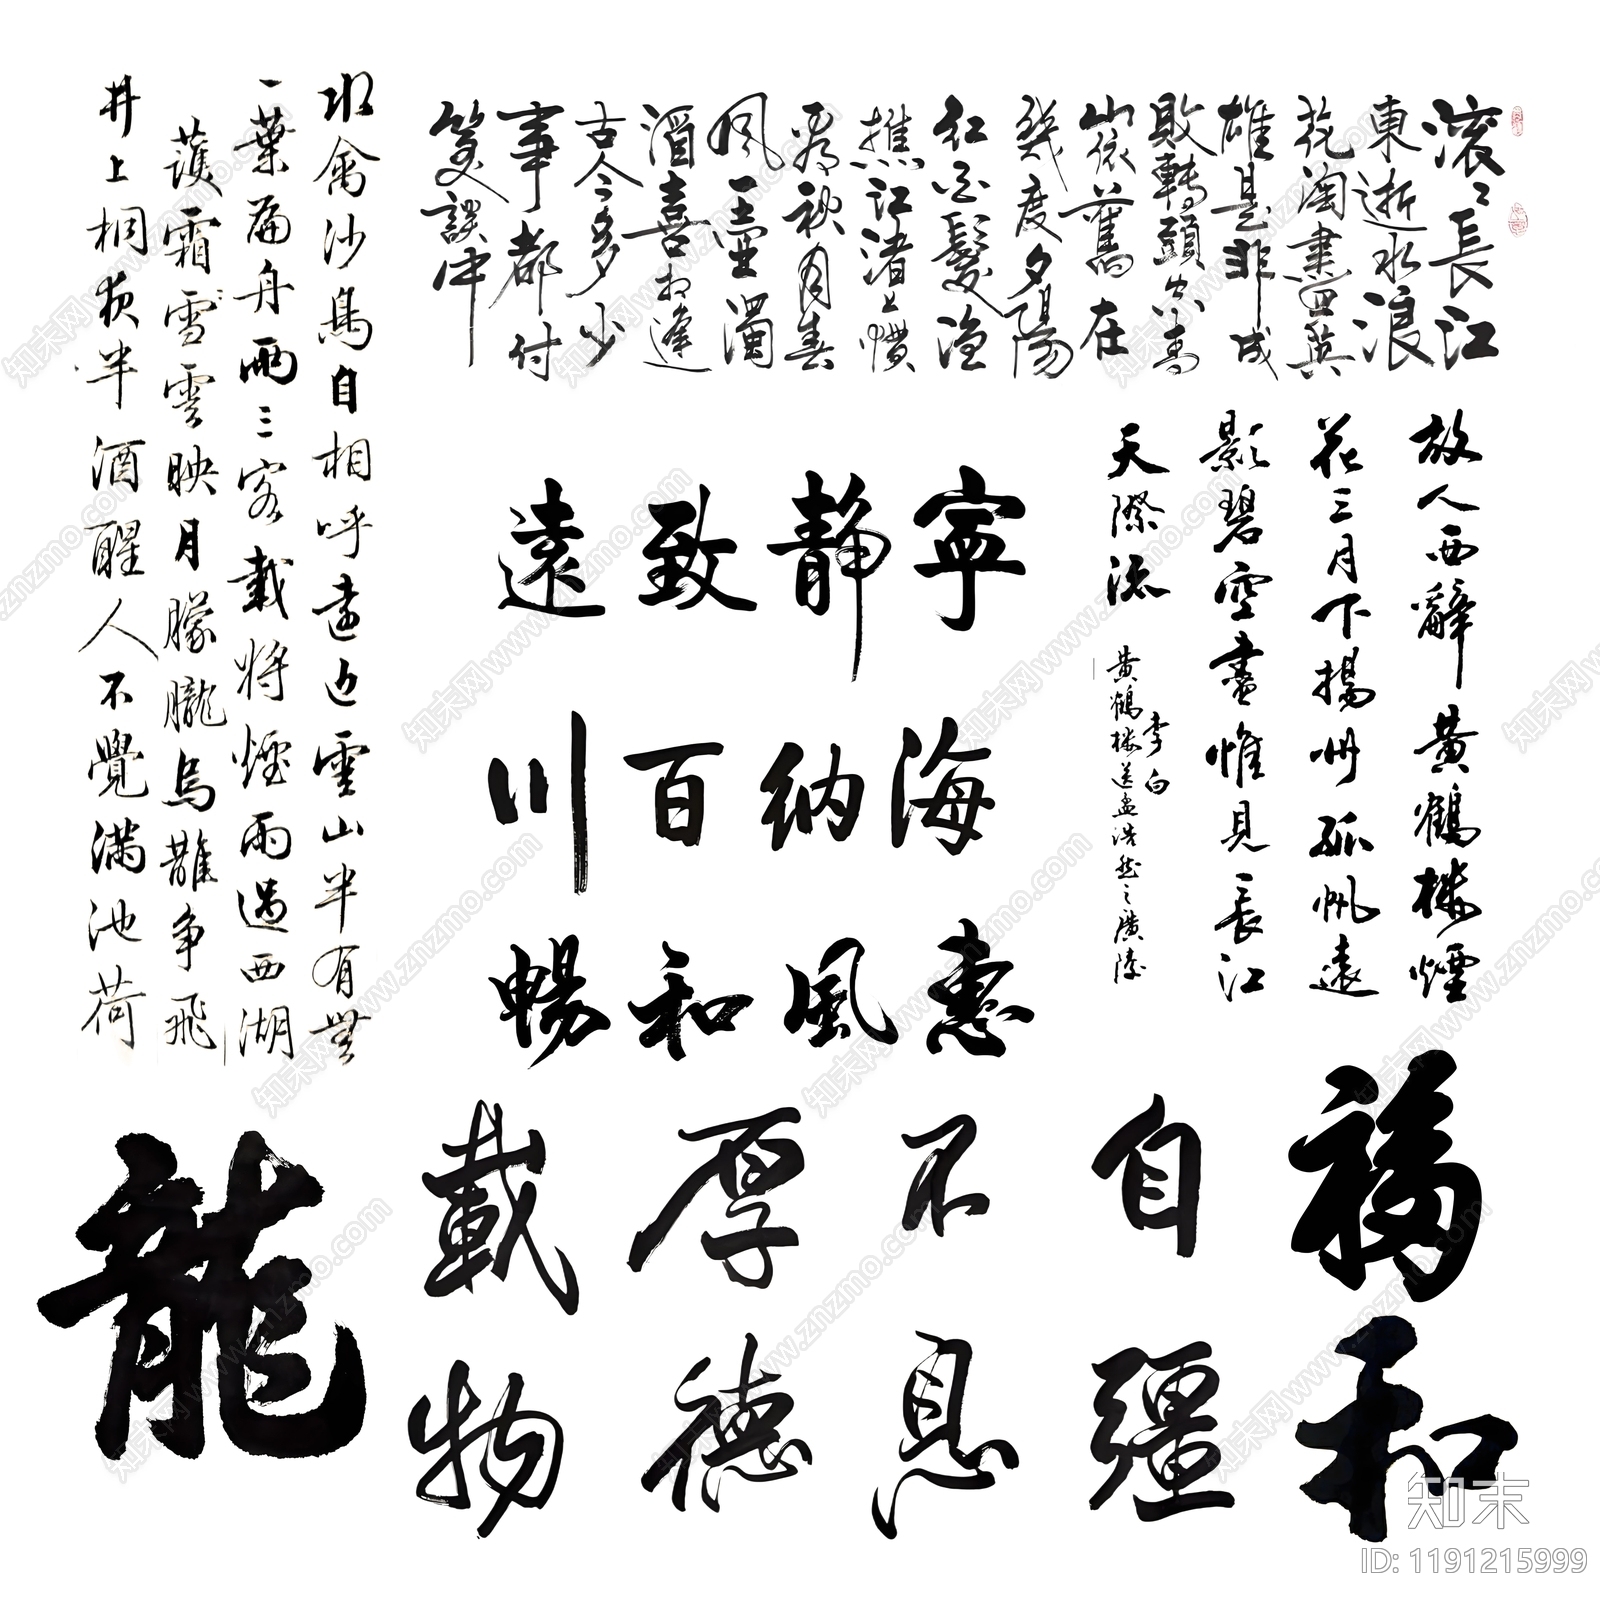 滚〻長江
東逝水浪
花淘盡英
雄是非成
敗轉頭空青
山依舊在
幾度夕陽
紅白髮漁
樵江渚上慣
看秋月春
風一壺濁
酒喜相逢
古今多少
事都付
笑談中
水禽沙鳥自相呼遠近雲山半有無
一葉扁舟兩三客載將煙雨過西湖
護霜雪雲映月朦朧烏鵲争飛
井上桐夜半酒醒人不覺滿池荷
故人西辭黄鶴樓煙
花三月下揚州孤帆遠
影碧空盡惟見長江
天際流
李白
黄鶴樓送孟浩然之廣陵
寧靜致遠
海納百川
惠風和暢
福
和
自疆
不息
厚德
載物
龍
知末
ID: 1191215999
知末网www.znzmo.com